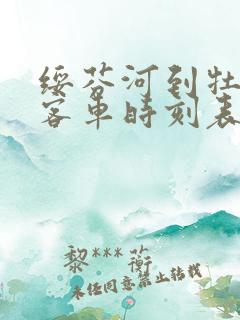 绥芬河到牡
客车时刻表
黎***蘅
未经同意禁止转载